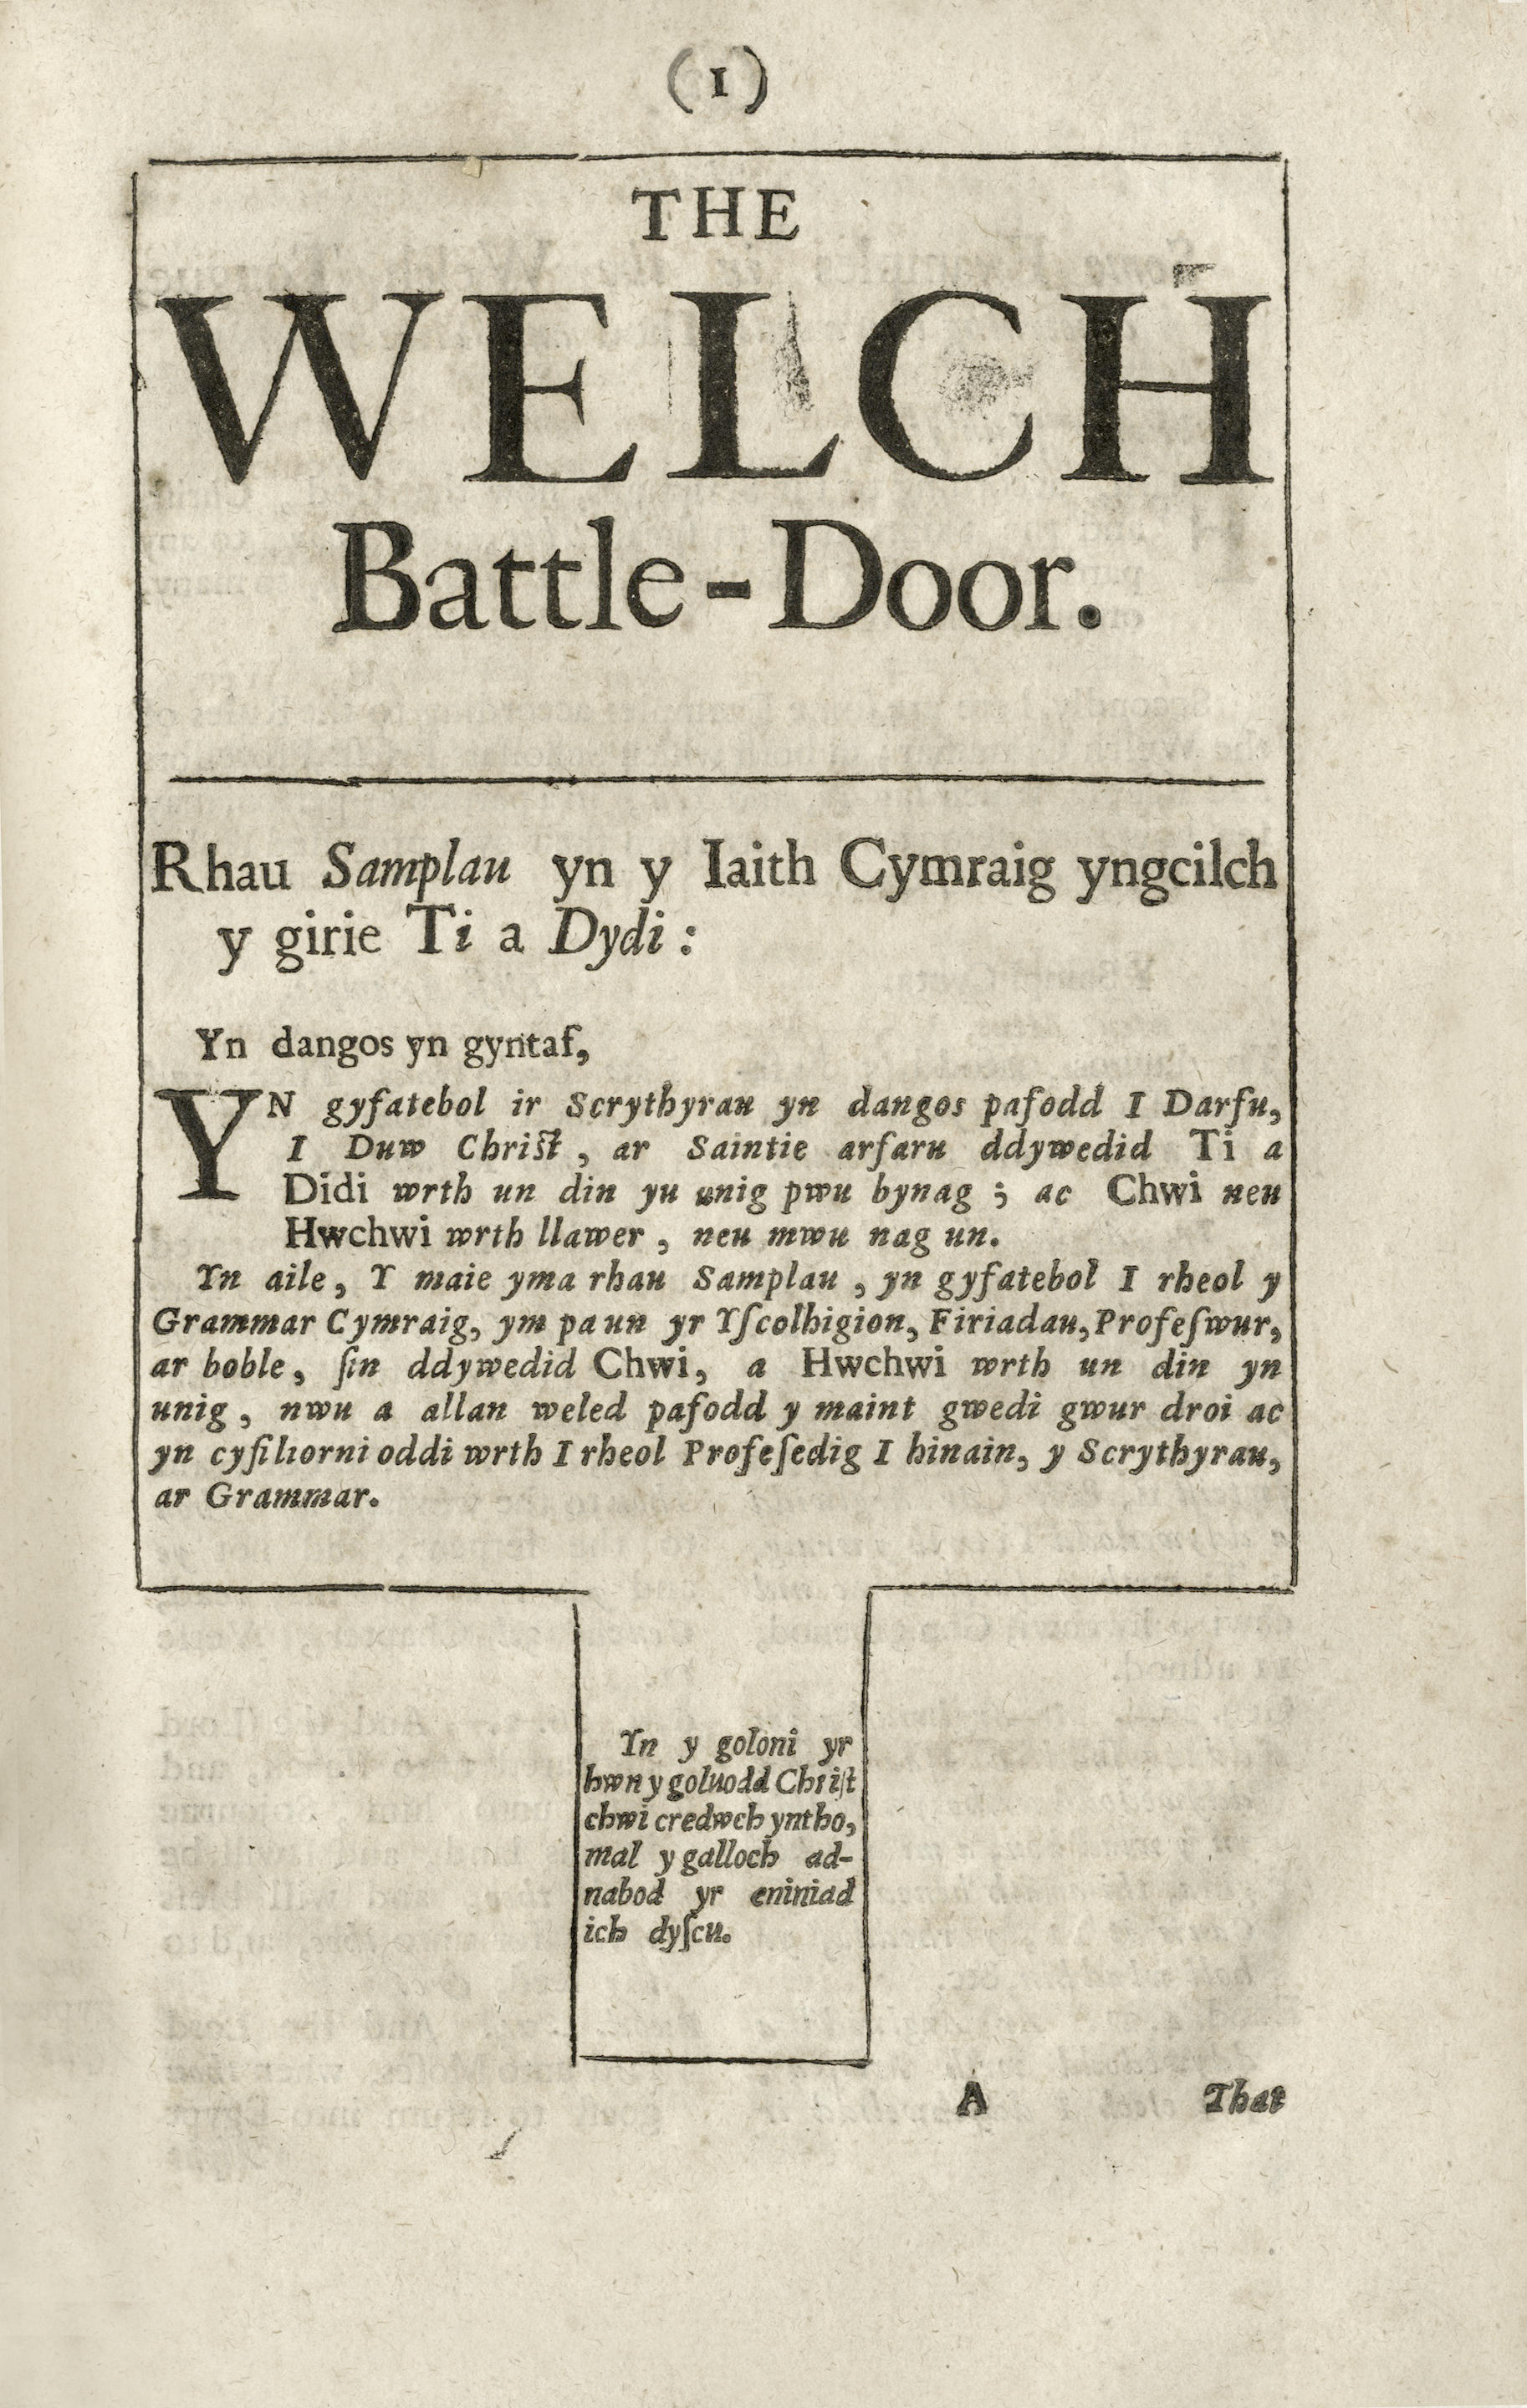 (1)
THE
WELCH
Battle-Door.
Rhau Samplau yn y Iaith Cymraig yngcilch
y girie Ti a Dydi:
Yn dangos yn gyntaf,
YN gyfatebol ir Scrythyrau yn dangos pafodd I Darfu,
I Duw Chriſt, ar Saintie arfaru ddywedid Ti a
Didi wrth un din yu unig pwu bynag; ac Chwi neu
Hwchwi wrth llawer, neu mwu nag un.
Yn aile, Y maie yma rhau Samplau, yn gyfatebol I rheol y
Grammar Cymraig, ym pa un yr Yſcolhigion, Firiadau, Profeſwur,
ar boble, ſin ddywedid Chwi, a Hwchwi wrth un din yn
unig, nwu a allan weled pafodd y maint gwedi gwur droi ac
yn cyfiliorni oddi wrth I rheol Profeſedig I hinain, y Scrythyrau,
ar Grammar.
Yn y goloni yr
hwn y goluodd Chriſt
chwi credwch yntho,
mal y galloch ad-
nabod yr eniniad
ich dyſcu.
A That